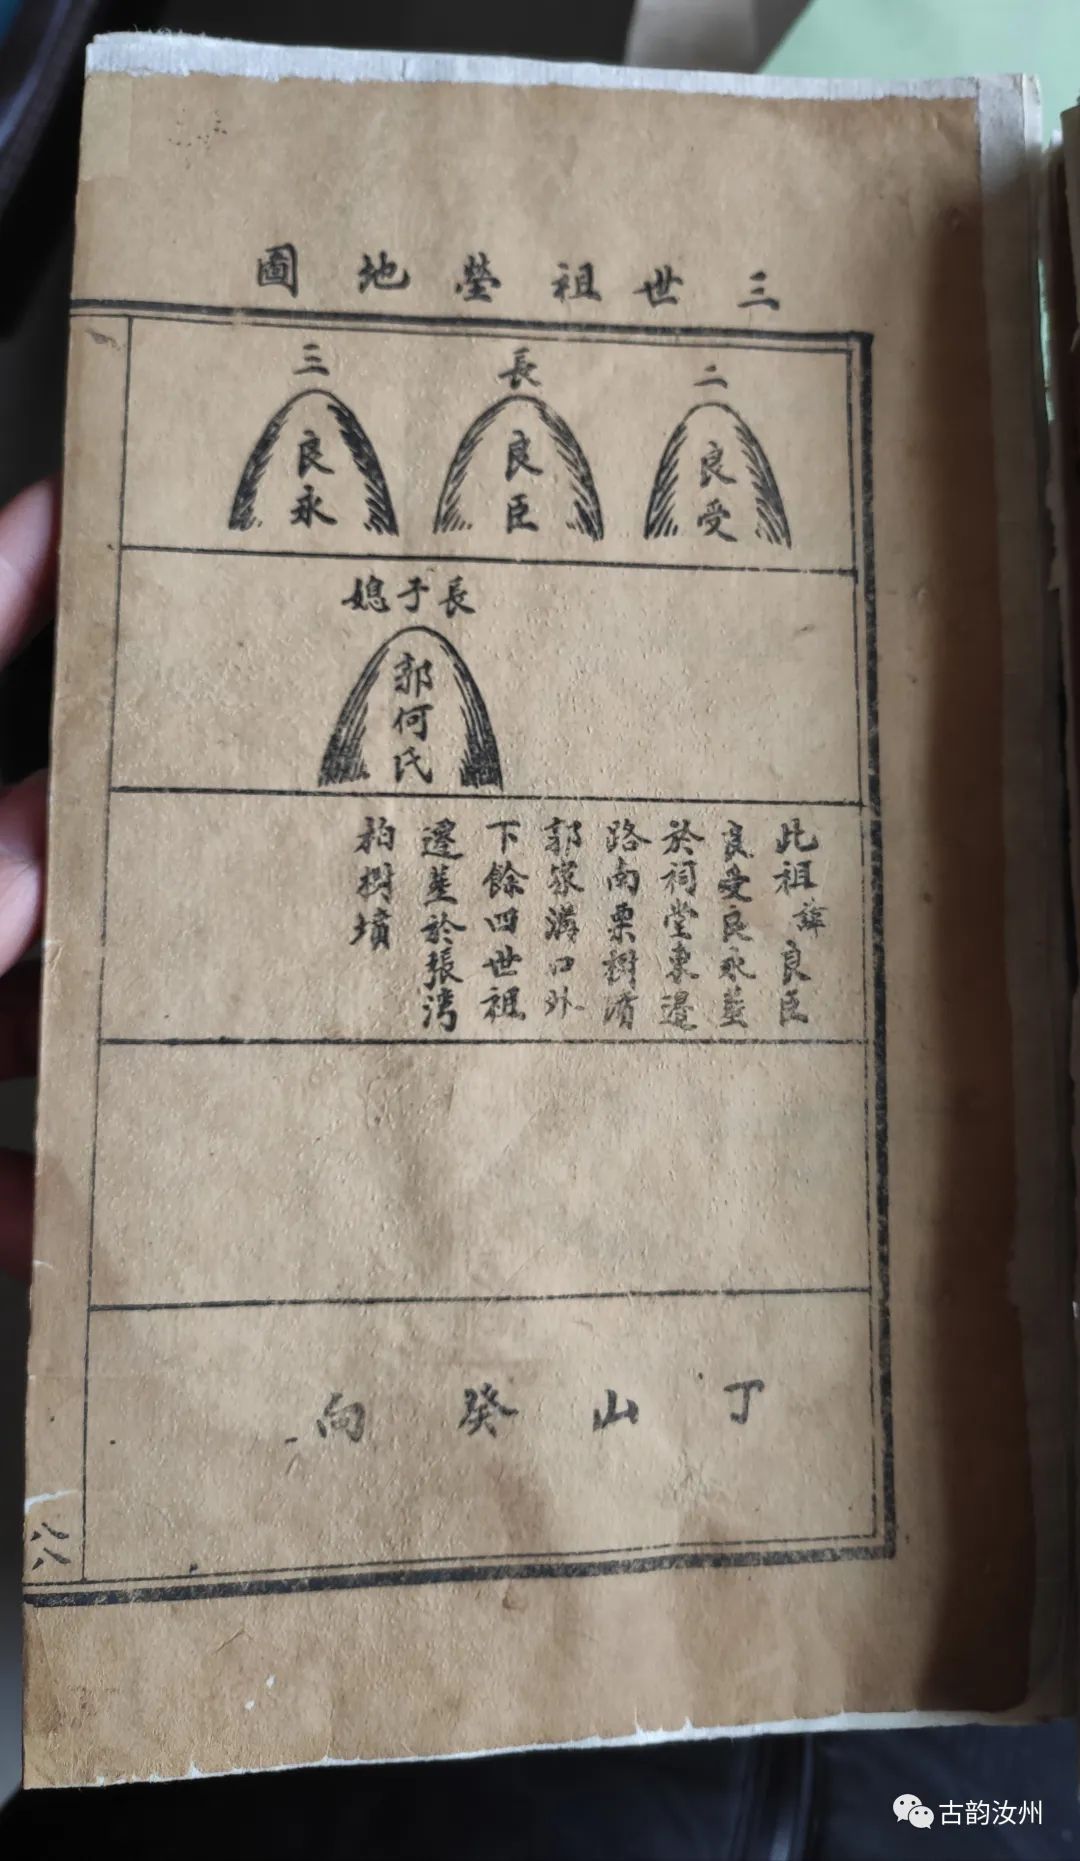 三世祖塋地圖
二
良受
長
良臣
三
良永
長子媳
郭何氏
此祖諱良臣
良受良永塟
於祠堂東邊
路南栗樹濆
郭家溝口外
下餘四世祖
遷塟於張湾
柏樹墳
丁山癸向
八八
古韵汝州